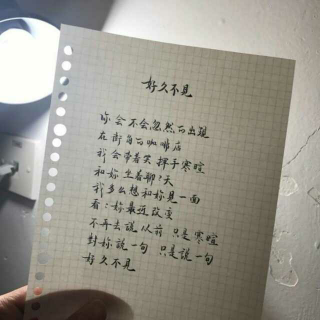 好久不見
你会不会忽然的出現
在街角的咖啡店
我会带着笑 揮手寒暄
和你坐着聊聊天
我多么想和你見一面
看看你最近改变
不再去説从前 只是寒暄
對你說一句 只是說一句
好久不見